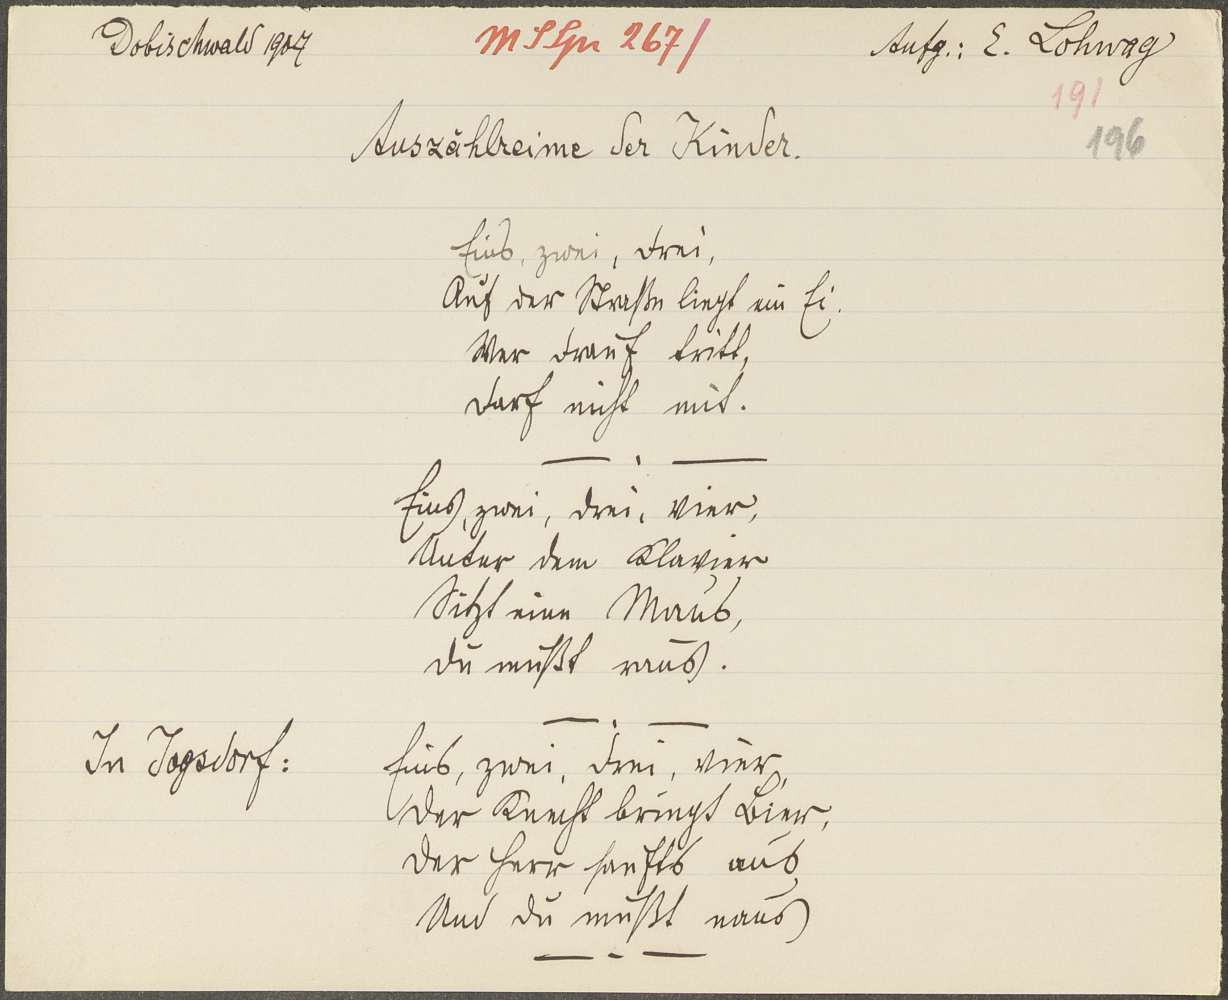 Dobischwald 1907
MSSpr 267/
Aufg.: E. Lohwag
191
196
Auszählreime der Kinder.
Eins, zwei, drei,
Auf der Straße liegt ein Ei.
Wer drauf tritt,
darf nicht mit.
Eins, zwei, drei, vier,
Unter dem Klavier
Sitzt eine Maus,
du mußt raus.
In Jogsdorf:
Eins, zwei, drei, vier,
Der Knecht bringt Bier,
Der Herr saufts aus,
Und du mußt naus